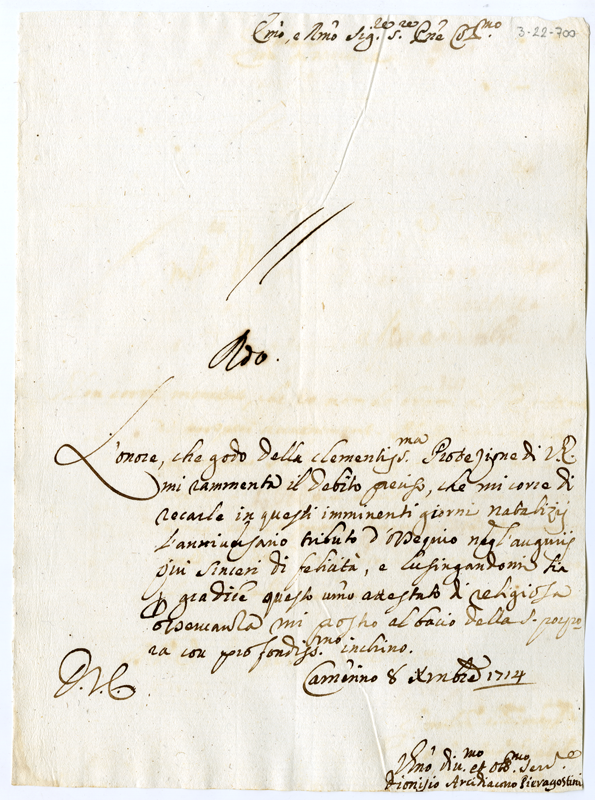 Em̃o, e Rm̃o Sig.re S.re Prñe Col.mo
3-22-700
Rdo.
L'onore, che godo della clementiss.ma Protezione di V.E.
mi rammenta il debito preciso, che mi corre di
recarle in questi imminenti giorni natalizij
l'anniversario tributo d'ossequio negl'augurij
più sinceri di felicità, e lusingandomi sia
p gradire questo umo attestato di religiosa
osservanza mi posto al bacio della S. porpo-
ra con profondiss.mo inchino.
Camerino 8 Xmbre 1714
D. V. E.
Umo diu.mo et obb.mo Ser.e
Dionisio Arcidiacono Pieragostini